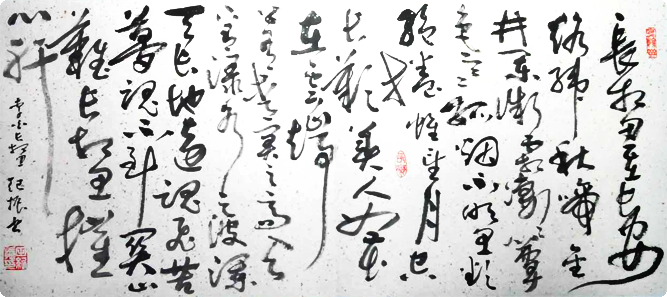 長相思在長安
絡緯秋啼金
井闌微霜凄凄簟
色寒孤燈不明思欲
絕卷帷望月空
長歎美人如花
在雲端
上有青冥之高天
下有淥水之波瀾
天長地遠魂飛苦
夢魂不到關山
難長相思摧
心肝
李白 紀振書